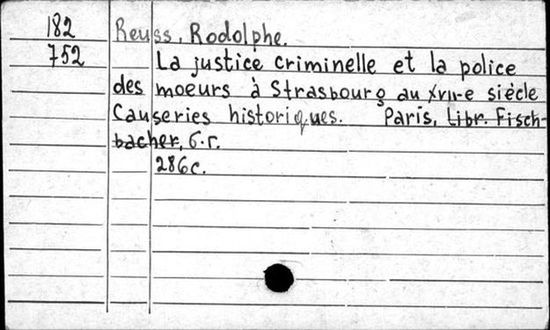 182 Reuss, Rodolphe.
752 La justice criminelle et la police
des moeurs à Strasbourg au XVII-e siècle
Causeries historiques. Paris, Libr. Fisch-
bacher, б.г.
286с.